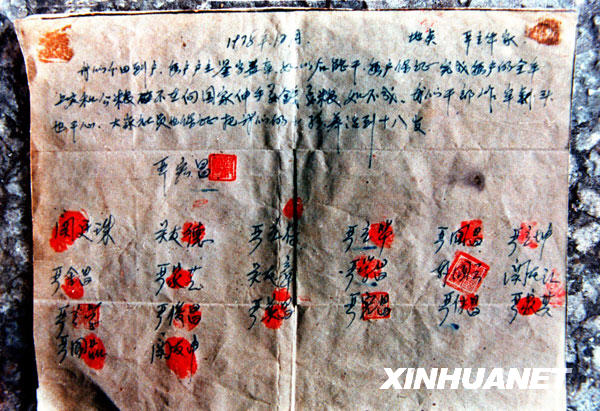 1978年12月 地点 严立华家
我们分田到户，每户户主签字盖章，如以后能干，每户保证完成每户的全年
上交和公粮不在向国家伸手要钱要粮，如不成，我们干部作牢刹头
也干心，大家社员也保证把我们的小孩养活到十八岁
严宏昌
关廷珠 关友德 严立付 严立华 严国昌 严立坤
严金昌 严家芝 关友章 严学昌 韩国云 关友江
严立学 严俊昌 严美昌 严宏昌 严付昌 严家其
严国品 关友申
XINHUANET